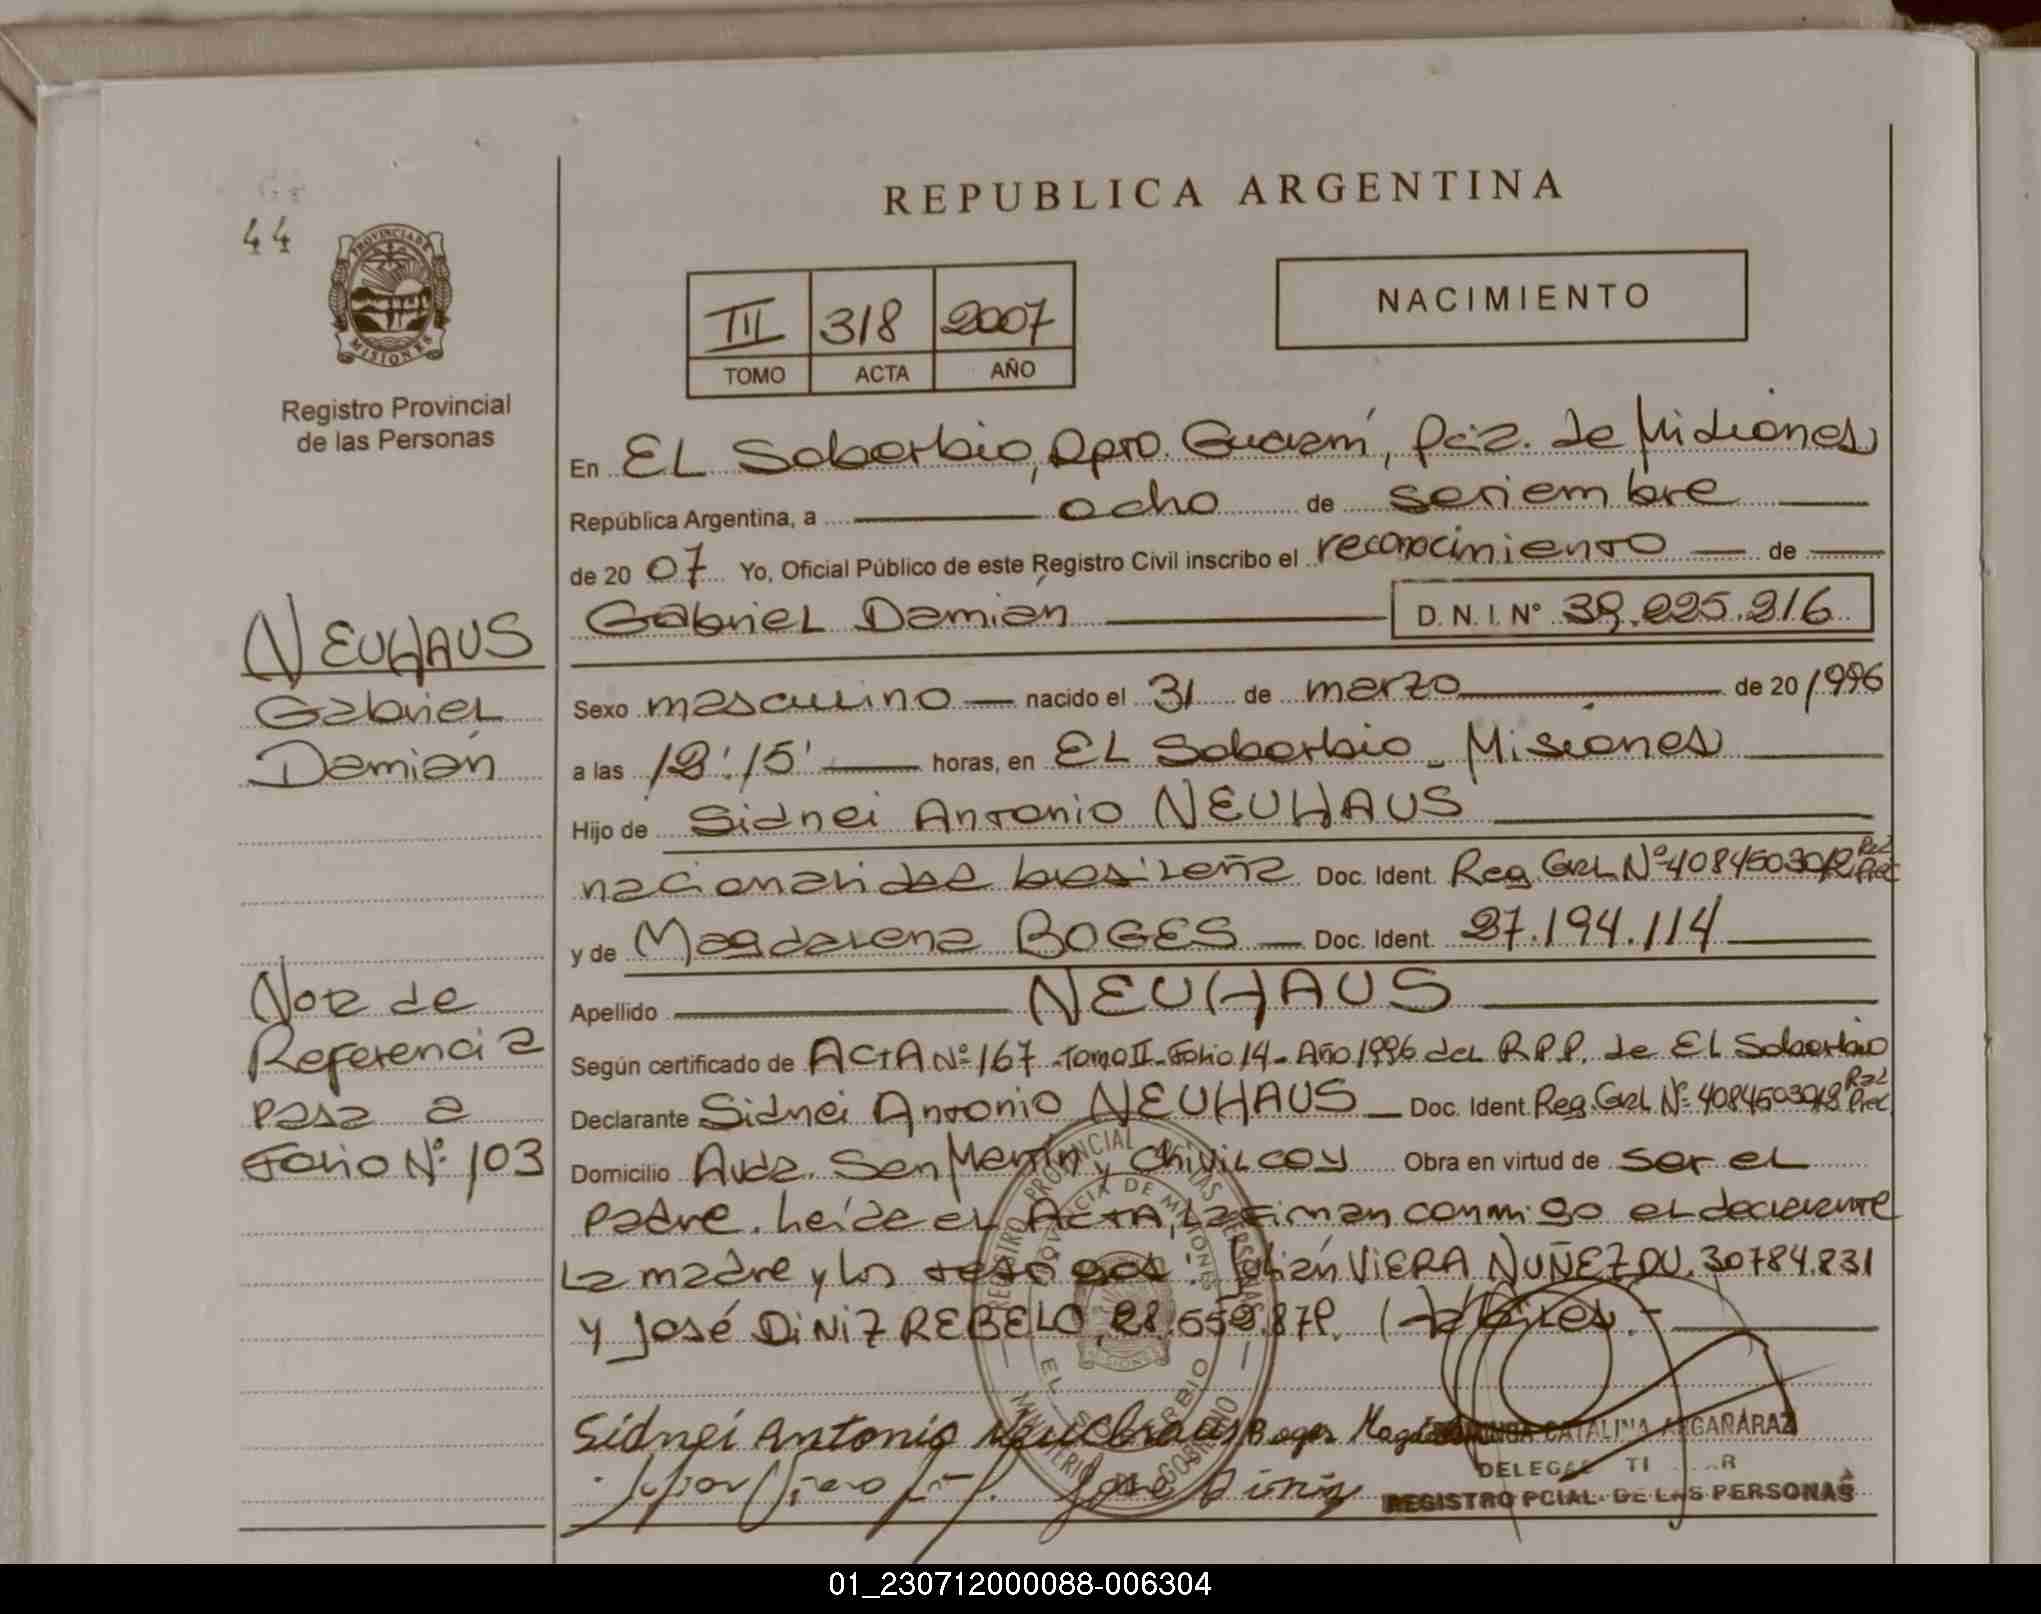 44
PROVINCIA DE
MISIONES
Registro Provincial
de las Personas
REPUBLICA ARGENTINA
III 318 2007
TOMO ACTA AÑO
NACIMIENTO
En EL Soberbio, Dpto. Guaraní, Pcia. de Misiones
República Argentina, a ocho de setiembre
de 2007 Yo, Oficial Público de este Registro Civil inscribo el reconocimiento de
Gabriel Damián D.N.I. Nº 39.225.216
Sexo masculino nacido el 31 de marzo de 20 1996
a las 12:15' horas, en EL Soberbio - Misiones
Hijo de Sidnei Antonio NEUHAUS
nacionalidad brasileña Doc. Ident. Reg. Gral Nº
y de Magdalena BOGES Doc. Ident. 27.194.114
Apellido NEUHAUS
Según certificado de ACTA Nº 167 - Tomo II - Folio 14 - Año 1996 del R.P.P. de El Soberbio
Declarante Sidnei Antonio NEUHAUS Doc. Ident. Reg. Gral Nº
Domicilio Avda. San Martín y Chivilcoy Obra en virtud de ser el
padre. Leída el ACTA, la firman conmigo el declarante
la madre y los testigos: Julián VIERA NUÑEZ DU. 30784.831
y José DINIZ REBELO, (Hábiles.-
NEUHAUS
Gabriel
Damián
Nota de
Referencia
pasa a
Folio Nº 103
Sidnei Antonio Neuhaus Boges
José Diniz
CATALINA ARGAÑARAZ
REGISTRO PCIAL. DE LAS PERSONAS
REGISTRO PROVINCIAL DE LAS PERSONAS
PROVINCIA DE MISIONES
MINISTERIO DE GOBIERNO
01_230712000088-006304